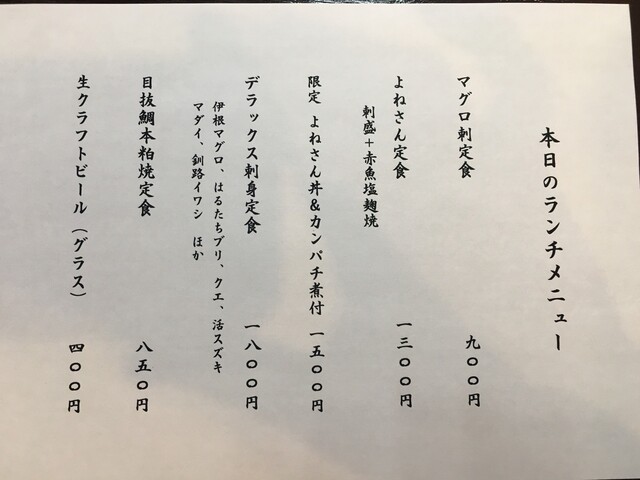 本日のランチメニュー
マグロ刺定食 九〇〇円
よねさん定食 一三〇〇円
刺盛+赤魚塩麹焼
限定 よねさん丼&カンパチ煮付 一五〇〇円
デラックス刺身定食 一八〇〇円
伊根マグロ、はるたちブリ、クエ、活スズキ
マダイ、釧路イワシ ほか
目抜鯛本粕焼定食 八五〇円
生クラフトビール(グラス) 四〇〇円